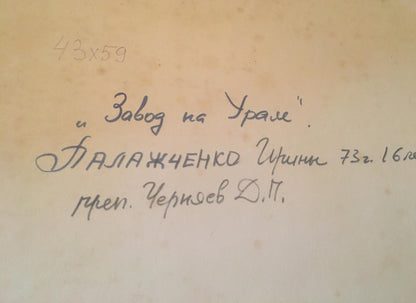 43x59
„Завод на Урале".
ПАЛАЖЧЕНКО Ирины 73г. 16 ле
преп. Черняев Д.П.